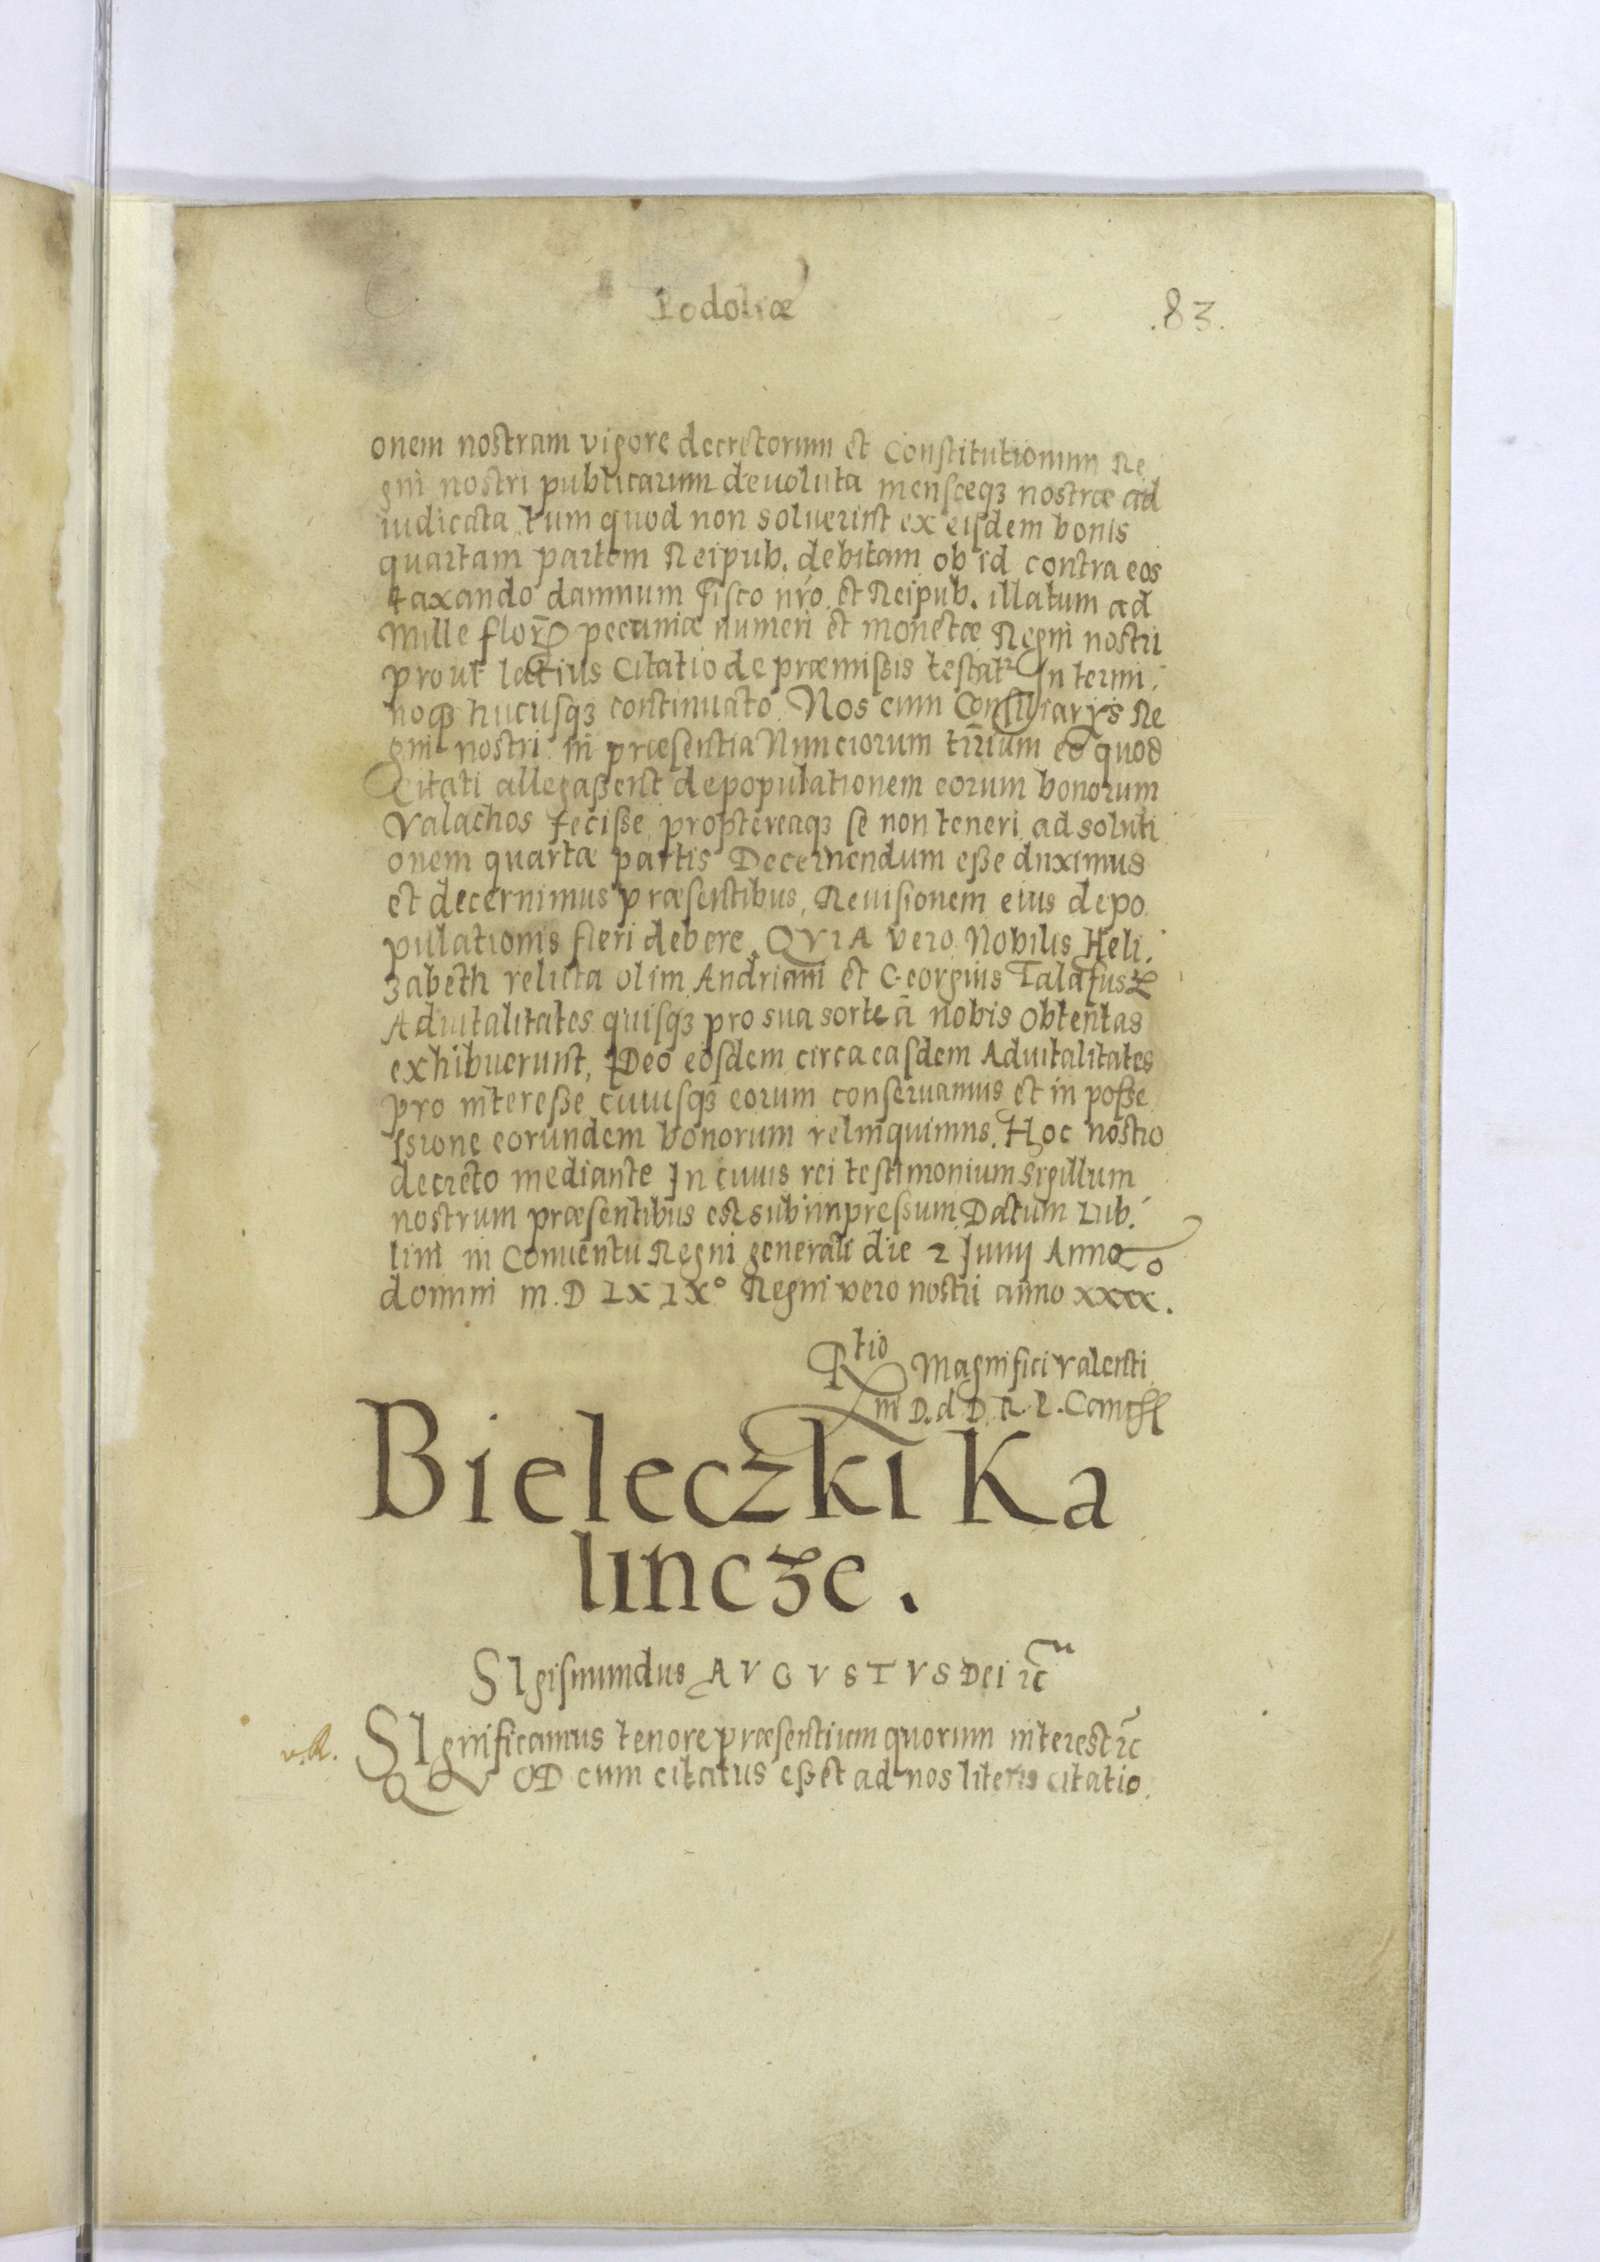 Podoliæ
.83.
onem nostram vigore decretorum et Constitutionum Re
gni nostri publicarum deuoluta mensæq3 nostræ ad
iudicata tum quod non soluerint ex eisdem bonis
quartam partem Reipub. debitam ob id contra eos
taxando damnum fisco nr̃o et Reipub. illatum ad
Mille flor. pecuniæ numeri et monetæ Regni nostri
prout latius Citatio de præmissis testat̃ In termi
noq3 hucusq3 continuato Nos cum Consiliarys Re
gni nostri in præsentia Nunciorum tr̃rium eo quod
Citati allegaßent depopulationem eorum bonorum
Valachos feciße proptereaq3 se non teneri ad soluti
onem quartæ partis Decernendum eße duximus
et decernimus præsentibus, Reuisionem eius depo
pulationis fieri debere, QVIA vero Nobilis Heli.
zabeth relicta olim Andriani et Georgius Talafus
Aduitalitates quisq3 pro sua sorte ã nobis obtentas
exhibuerunt, IDeo eosdem circa easdem Aduitalitates
pro intereße cuiusq3 eorum conseruamus et in poße
ssione eorundem bonorum relinquimus. Hoc nostro
decreto mediante In cuius rei testimonium sigillum
nostrum præsentibus est subimpressum Datum Lub.
lini in Conuentu Regni generali die 2 Junij Anno
domini M.D LXIX° Regni vero nostri anno xxxx.
Rtio Magnifici Valenti
ni D. d D. R. P. Canc
Bieleczki Ka
lincze.
SIgismundus AVGVSTVS Dei rc̃
v.R. SIgnificamus tenore præsentium quorum interest rc̃
QVOD cum citatus eßet ad nos literis citatio